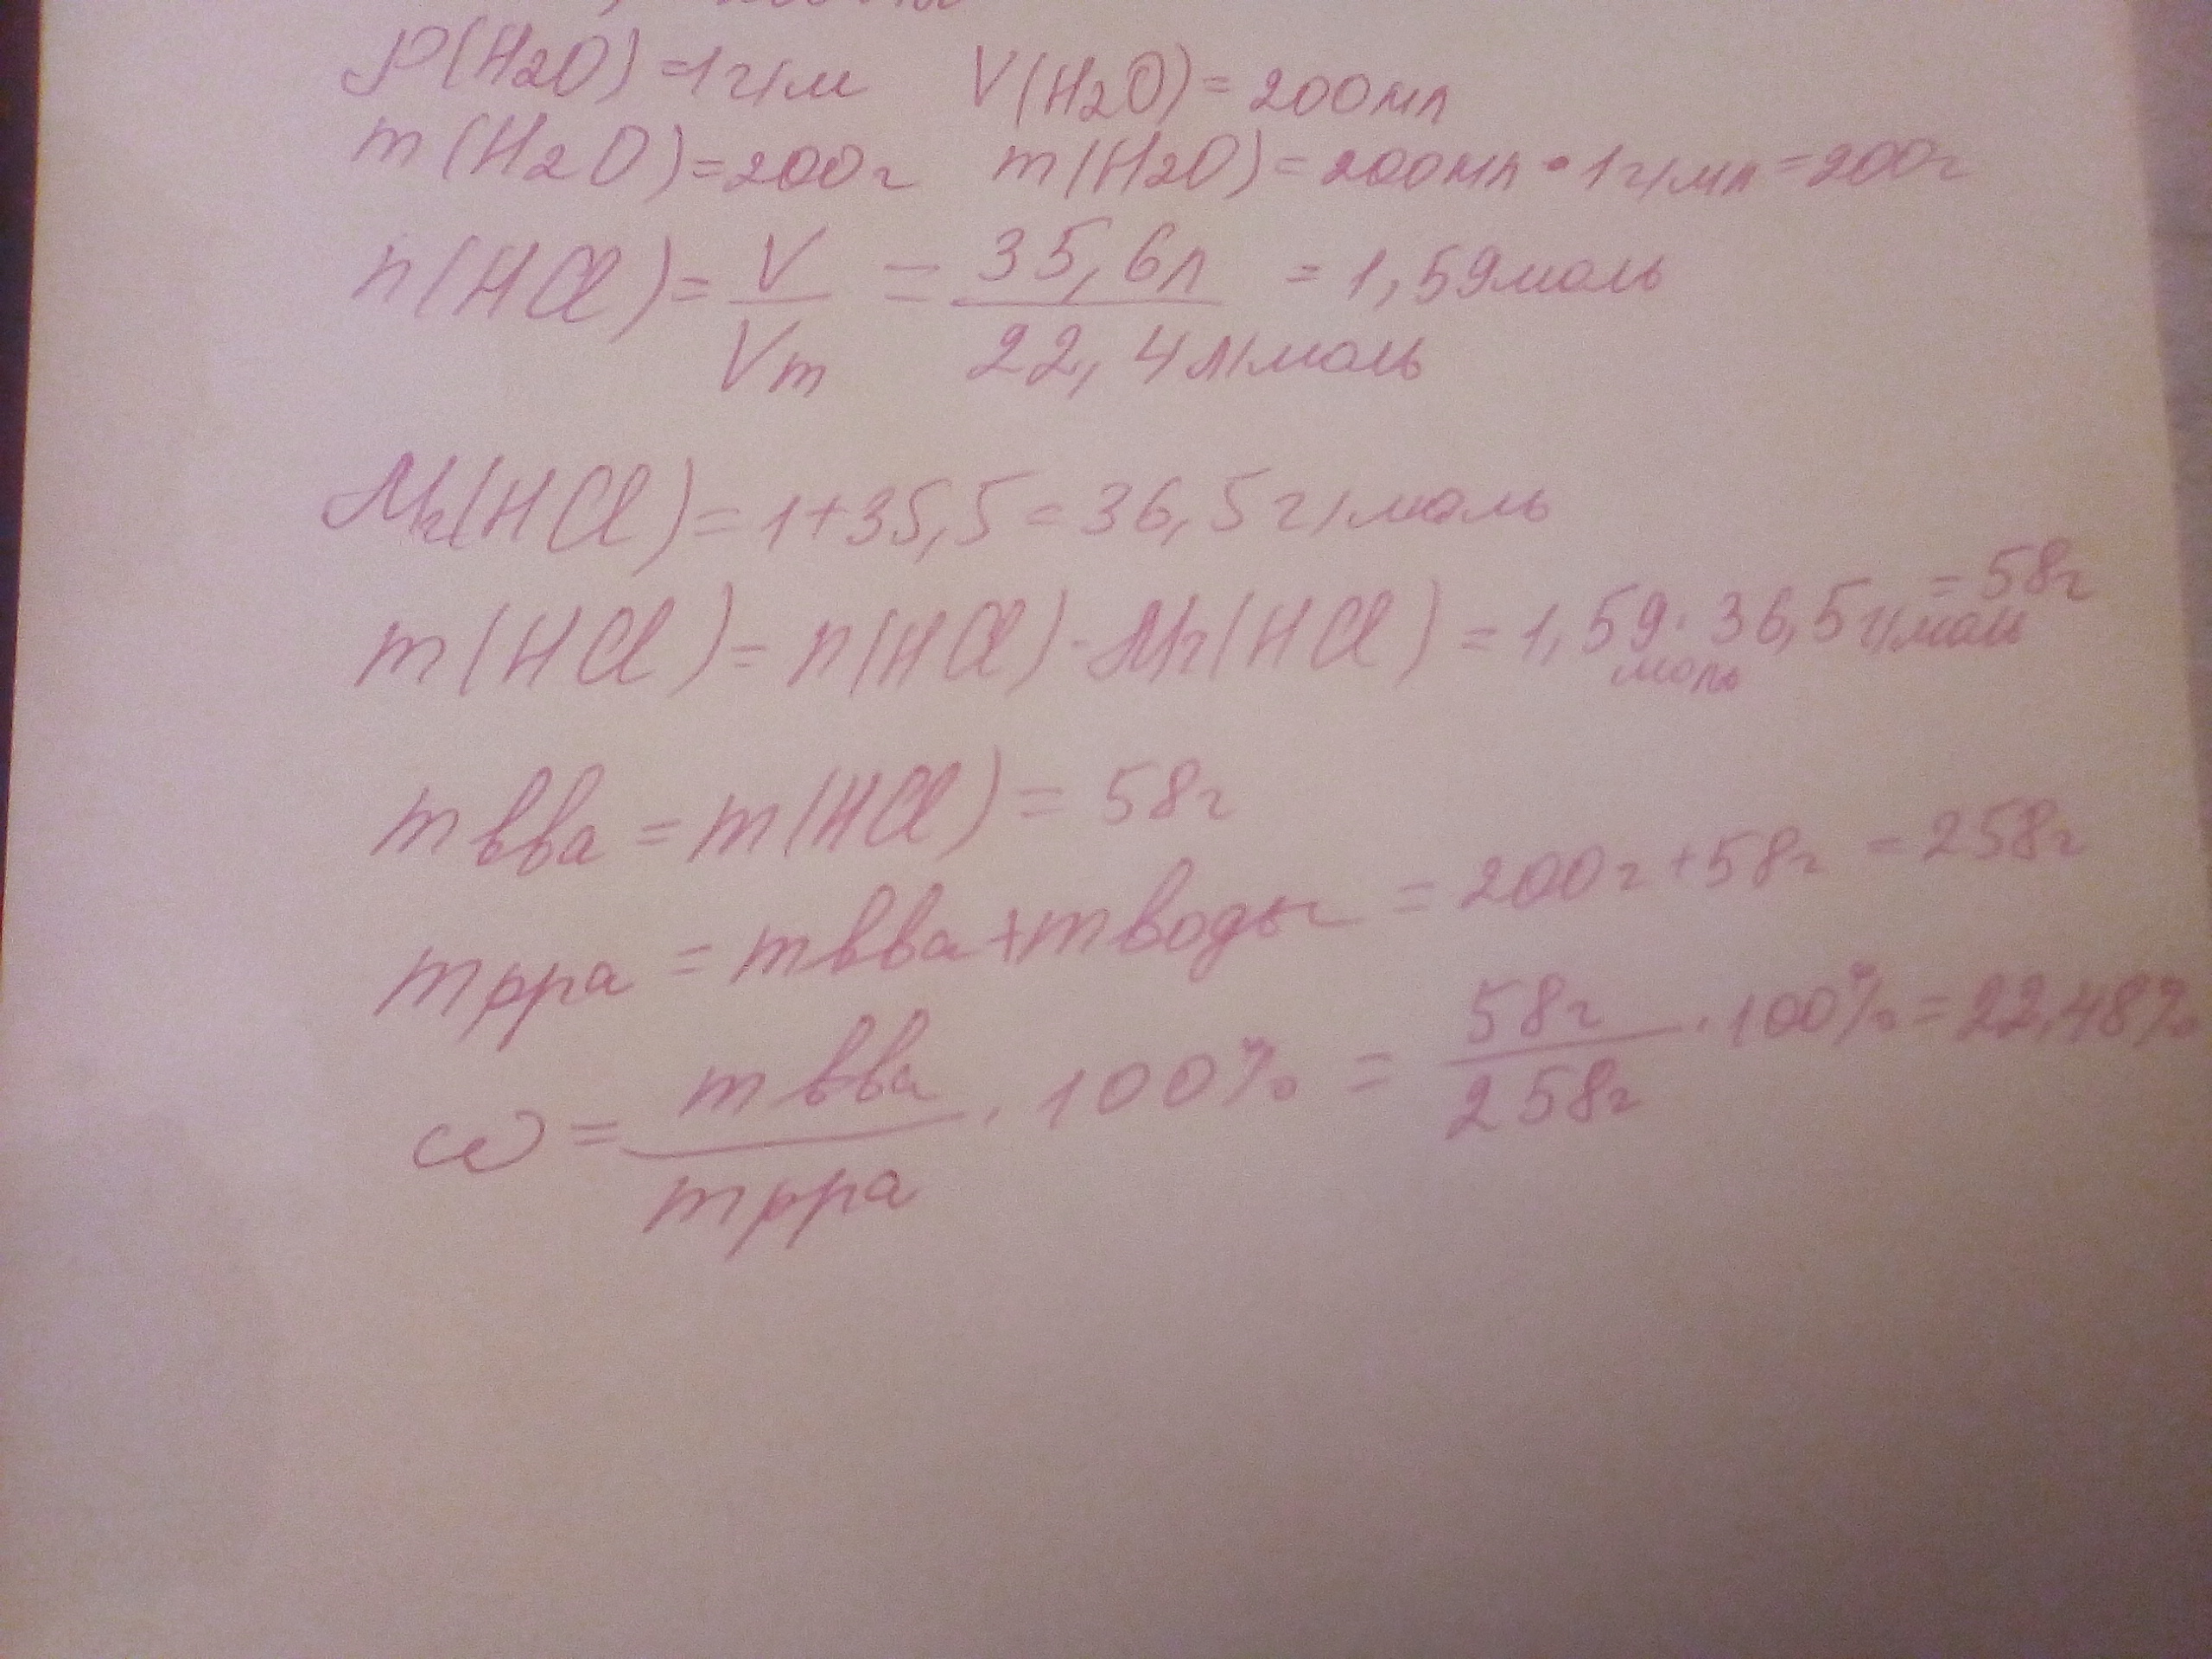 ρ(H2O)=1г/м V(H2O)=200мл
m(H2O)=200г m(H2O)=200мл•1г/мл=200г
n(HCl)=V/Vm=35,6л/22,4л/моль=1,59моль
Mr(HCl)=1+35,5=36,5г/моль
m(HCl)=n(HCl)·Mr(HCl)=1,59моль·36,5г/моль=58г
mвва=m(HCl)=58г
mрра=mвва+mводы=200г+58г=258г
ω=mвва/mрра·100%=58г/258г·100%=22,48%